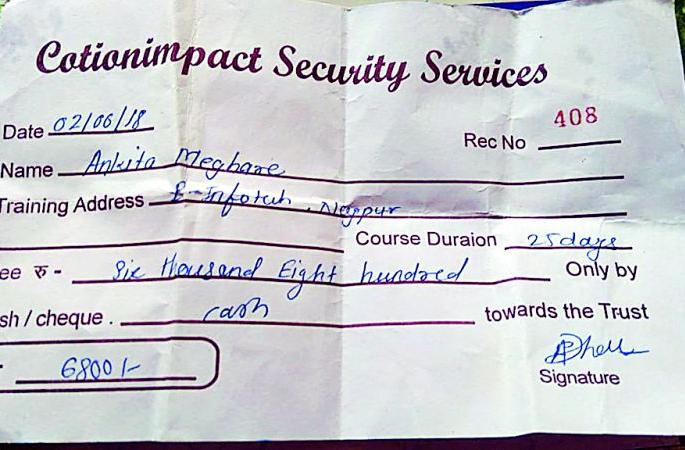 Cotionimpact Security Services
Date 02/06/18
Rec No 408
Name Ankita Meghare
Training Address E-Infotech, Nagpur
Course Duraion 25 days
ee रु - Six thousand Eight hundred Only by
sh / cheque . cash towards the Trust
6800/-
Signature